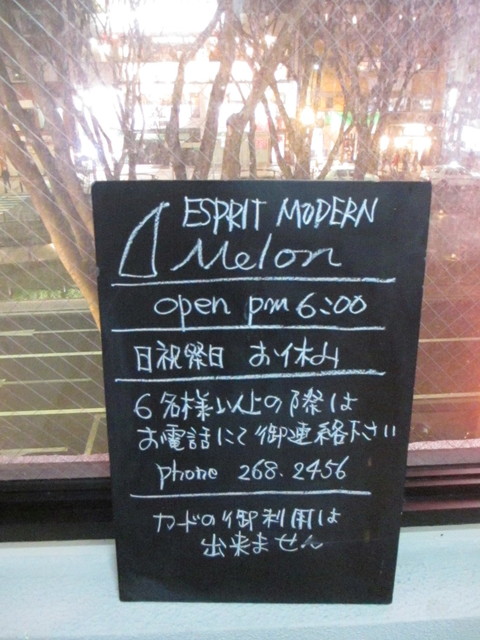 ESPRIT MODERN
Melon
open pm 6:00
日祝祭日 お休み
6名様以上の際は
お電話にて御連絡下さい
phone 268.2456
カードの御利用は
出来ません